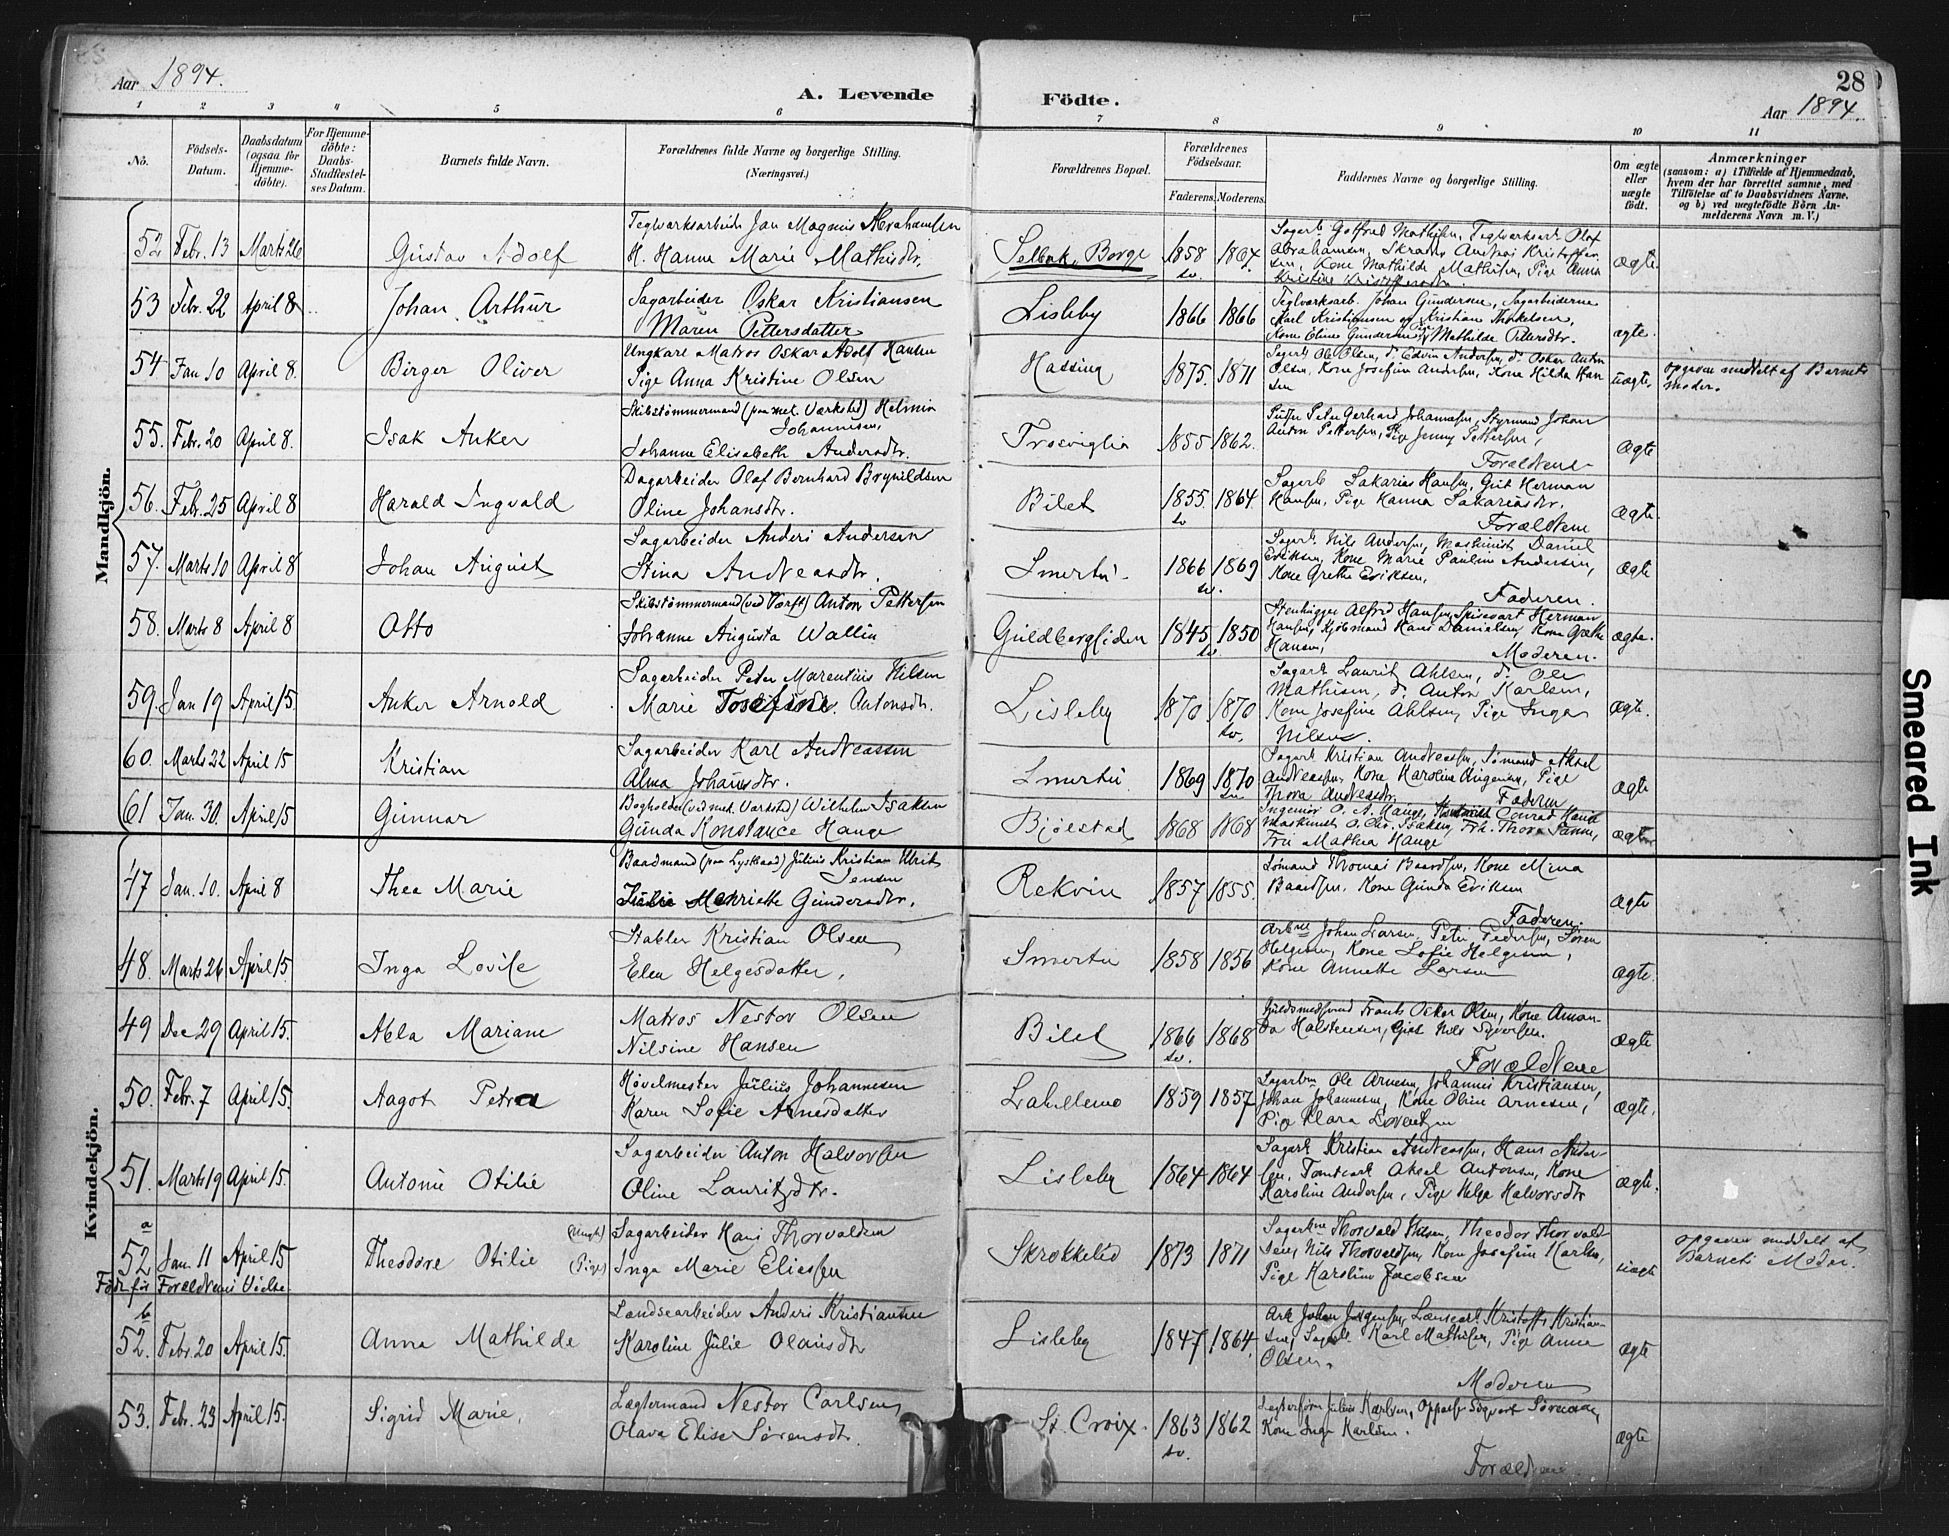 28
Aar 1894.
A. Levende Födte.
Aar 1894.
1 2 3 4 5 6 7 8 9 10 11
No.
Födsels-Datum.
Daabsdatum (ogsaa for Hjemme-döbte).
For Hjemme-döbte: Daabs-Stadfæstel-ses Datum.
Barnets fulde Navn.
Forældrenes fulde Navne og borgerlige Stilling. (Næringsvei.)
Forældrenes Bopæl.
Forældrenes Födselsaar.
Faderens. Moderens.
Faddernes Navne og borgerlige Stilling.
Om ægte eller uægte födt.
Anmærkninger
(saasom: a) i Tilfælde af Hjemmedaab, hvem der har forrettet samme, med Tilföielse af to Daabsvidners Navne, og b) ved uægtefödte Börn An-melderens Navn m. V.)
Mandkjön.
52 Febr. 13 Marts 26 Gustav Adolf
Teglværksarbeider Jan Magnus Abrahamsen
H. Hanne Marie Mathisdtr.
Selbak, Borge 1858 sv. 1864 ægte.
53 Febr. 22 April 8 Johan Arthur
Sagarbeider Oskar Kristiansen
Maren Pettersdatter
Lisleby 1866 1866
Teglværksarb. Johan Gundersen, Sagarbeiderne
Karl Kristiansen og Kristian Thorkelsen,
Kone Eline Gundersen, Pige Mathilde Pettersdtr. ægte.
54 Jan 10 April 8. Birger Oliver
Ungkarl Matros Oskar Adolf Hansen
Pige Anna Kristine Olsen
Hassing 1875. 1871
Sagarb. Ole Olsen, d. Edvin Andersen, d. Oskar Anton
Olsen, Kone Josefine Andersen, Kone Hilda Han
sen uægte
Opgaven meddelt af Barnets
Moder.
55. Febr. 20 April 8. Isak Anker
Skibstömmermand (paa mek. Værksted) Helmin
Johannesen,
Johanne Elisabeth Andersdtr.
Trosviglia 1855 1862.
Peter Gerhard Johannesen, Styrmand Johan
Anton Pettersen, Pige Jenny Pettersen,
Forældrene ægte
56. Febr. 25 April 8 Harald Ingvald
Dagarbeider Olaf Bernhard Brynildsen
Oline Johansdtr.
Bilet 1855. sv 1864.
Sagarb Sakarias Hansen, Gut Herman
Hansen, Pige Hanna Sakariasdtr.
Forældrene ægte.
57. Marts 10 April 8 Johan August
Sagarbeider Anders Andersen
Stina Andreasdtr.
Smertu. 1866 sv. 1869
Sagarb. Nils Andersen, Maskinist Daniel
Eriksen, Kone Marie Pauline Andersen,
Kone Grethe Eriksen,
Faderen. ægte
58. Marts 8 April 8 Otto
Skibstömmermand (ved Værft) Anton Pettersen
Johanne Augusta Wallin
Guldbergsliden 1845 sv. 1850
Stenhugger Alfred Hansen, Spisevært Herman
Hansen, Kjöbmand Hans Danielsen, Kone Grethe
Hansen, Moderen. ægte.
59. Jan 19 April 15. Anker Arnold
Sagarbeider Peter Marentius Nilsen
Marie Josefine Antonsdtr.
Lisleby 1870. 1870 sv.
Sagarb Laurits Ahlsen, d. Ole
Mathisen, d. Anton Karlsen,
Kone Josefine Ahlsen, Pige Inga
Nilsen. ægte.
60. Marts 22 April 15 Kristian
Sagarbeider Karl Andreassen
Alma Johansdtr.
Smertu 1869 1870 sv.
Sagarb Kristian Andreassen, Sömand Aksel
Andreassen, Kone Karoline Pige
Thora Andreasdtr. Faderen ægte
61 Jan. 30. April 15 Gunnar
Bogholder (ved mek. Værksted) Wilhelm Isaksen
Gunda Konstance Hauge
Bjölstad 1868 1868
Ingeniör O. A. Hauge, Conrad Hauge
Maskinist O. Chr. Isaksen, Frk. Thora
Fru Mathea Hauge ægte
Kvindekjön.
47 Jan. 10. April 8 Thea Marie
Baadsmand (paa Lystbaad) Julius Kristian Ulrik
Jensen
Julie Henriette Gundersdtr.
Rekvin 1857 1855.
Sömand Thomas Baardsen, Kone Mina
Baardsen, Kone Gunda Eriksen
Faderen. ægte
48. Marts 26 April 15. Inga Lovise
Stabler Kristian Olsen
Elen Helgesdatter.
Smertu 1858 1856
Arbne Johan Larsen, Petter Pedersen, Sören
Helgesen, Kone Sofie Helgesen,
Kone Annette Larsen ægte.
49 Dec 29 April 15. Abla Mariane
Matros Nestor Olsen
Nilsine Hansen
Bilet 1866 sv. 1868
Guldsmedsvend Frants Oskar Olsen, Kone Aman-
da Halstensen, Gut Nils Syversen.
Forældrene ægte
50. Febr. 7 April 15. Aagot Petra
Hövelmester Julius Johannesen
Karen Sofie Arnesdatter
Lahellemo 1859 1857
Sagarbne Ole Arnesen, Johannes Kristiansen,
Johan Johannesen, Kone Oline Arnesen,
Pige Klara Lorentzen ægte.
51. Marts 19 April 15. Antonie Otilie
Sagarbeider Anton Halvorsen
Oline Lauritzdtr.
Lisleby 1864 1864
Sagarb Kristian Andreassen, Hans Ander-
sen, Tomtearb Aksel Antonsen, Kone
Karoline Andersen, Pige Helga Halvorsdtr ægte.
52 a Jan. 11 April 15 Theodore Otilie
(Ungk.) Sagarbeider Hans Thorvaldsen
(Pige) Inga Marie Eliassen
Skrökkelid 1873 1871
Sagarbne Thorvald Nilsen, Theodor Thorvald-
sen, Nils Thorvaldsen, Kone Josefine Karlsen,
Pige Karoline Jacobsen uægte
Opgaven meddelt af
Barnets Moder.
Födt för Forældrenes Vielse
52. b Febr. 20 April 15. Anna Mathilde
Landsearbeider Anders Kristiansen
Karoline Julie Olausdtr
Lisleby 1847 1864.
Arb Johan Jörgensen, Lænsearb Kristoffer Kristian-
sen, Sagarb Karl Mathisen, Pige Anna
Olsen.
Moderen ægte
53. Febr. 23 April 15. Sigrid Marie.
Lægtermand Nestor Carlsen
Olava Elise Sörensdtr.
St. Croix. 1863 sv. 1862
Julius Karlsen, Sigvart Sörensen,
Kone Inga Karlsen.
Forældrene ægte
Smeared Ink